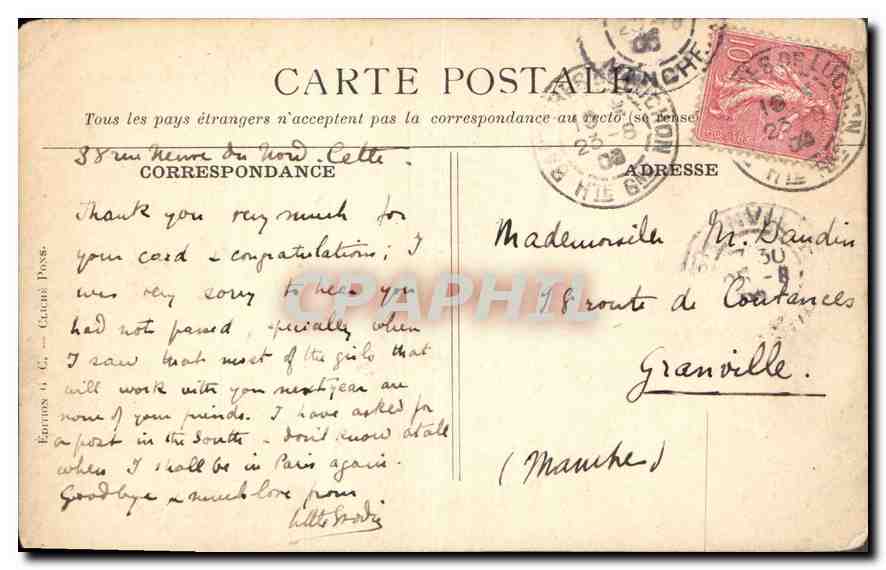 CARTE POSTALE
Tous les pays étrangers n'acceptent pas la correspondance au recto (se rense
38 rue Neuve du Nord. Cette.
CORRESPONDANCE
Thank you very much for
your card & congratulations; I
was very sorry to hear you
had not passed, specially when
I saw that most of the girls that
will work with you next year are
none of your friends. I have asked for
a post in the South & don't know at all
when I shall be in Paris again.
Goodbye & much love from
ÉDITION G. C. — CLICHÉ PONS.
ADRESSE
Mademoiselle M. Daudin
18 route de Coutances
Granville.
(Manche)
10
MANCHE
LUCHON
Hte Gne
23 -8
08
ES DE LUCHON
Hte Gne
23
7 30
25 -8
CPAPHIL